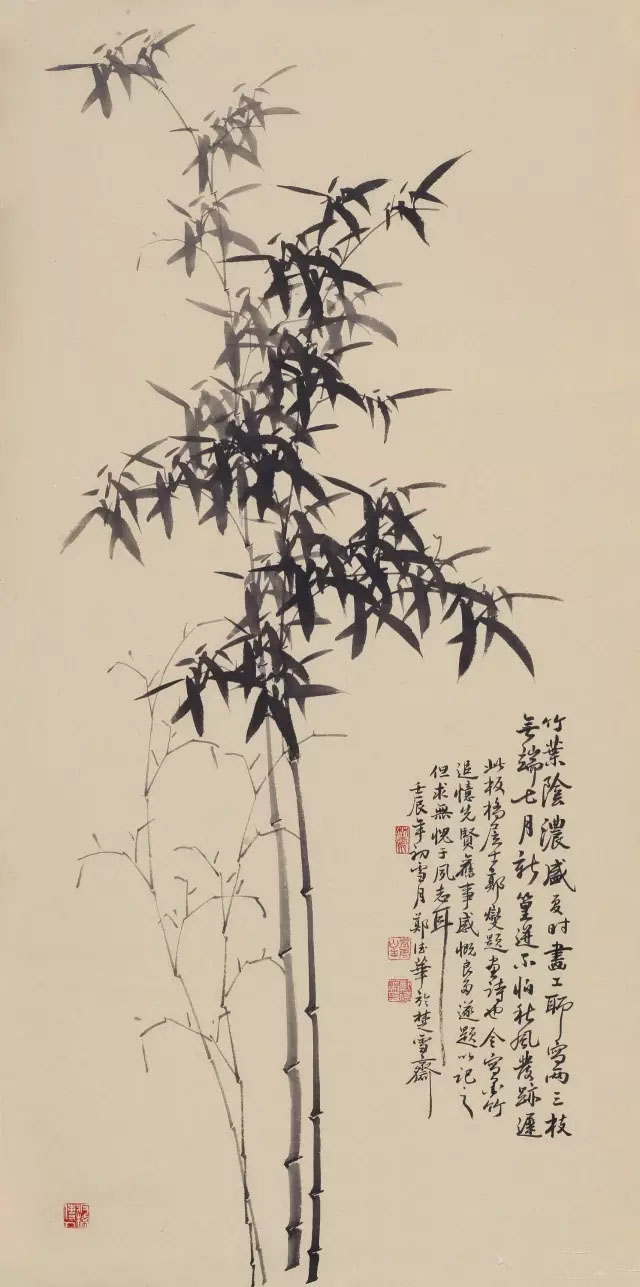 竹葉陰濃盛夏时畫工聊寫兩三枝
无端七月新篁迸不怕秋風發跡遲
此板橋居士鄭燮題畫詩也今寫墨竹
追憶先賢舊事感慨良多遂題以記之
但求無愧于風志耳
壬辰年初雪月鄭德華於楚雪齋